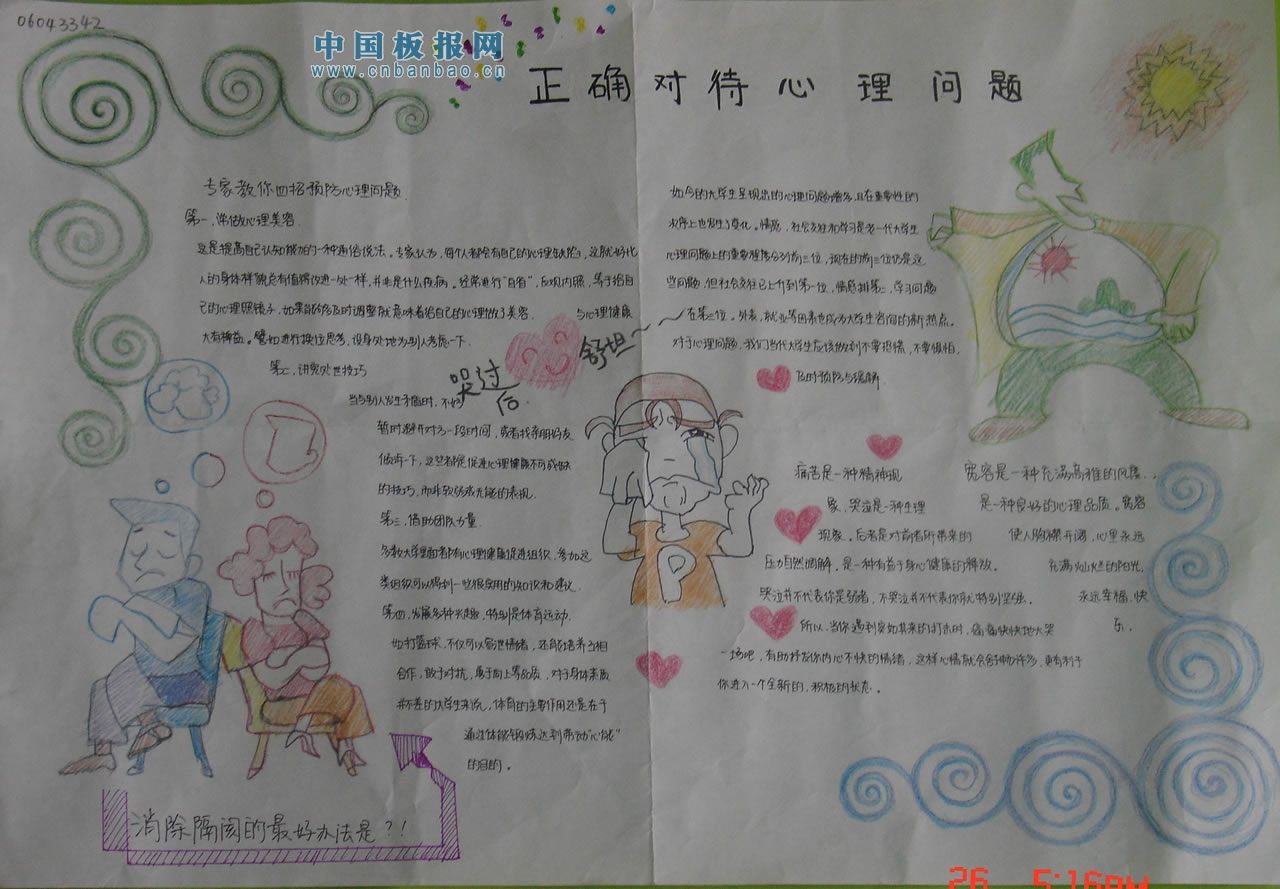 06043342
中国板报网
www.cnbanbao.cn
正确对待心理问题
专家教你四招预防心理问题
第一、常做心理美容
这是提高自己认知能力的一种通俗说法。专家认为，每个人都会有自己的心理缺陷，这就好比
人的身体样貌总有值得改进一处一样，并非是什么疾病。经常进行“自省”，反观内照，等于给自
己的心理照镜子，如果能够及时调整就意味着给自己的心理做了美容，与心理健康
大有裨益。譬如进行换位思考，设身处地为别人考虑一下。
第二、讲究处世技巧
当与别人发生矛盾时，不妨
暂时避开对方一段时间，或者找亲朋好友
倾诉一下，这些都是促进心理健康不可或缺
的技巧，而非软弱或无能的表现。
第三、借助团队力量
多数大学里面都有心理健康促进组织，参加这
类组织可以得到一些很实用的知识和建议。
第四、发展多种兴趣，特别是体育运动.
如打篮球，不仅可以宣泄情绪，还能培养互相
合作，敢于对抗，勇于向上等品质，对于身体素质
并不差的大学生来说，体育的主要作用还是在于
通过体能锻炼达到带动“心能”
的目的。
消除隔阂的最好办法是？！
哭过后
舒坦～～
如今的大学生呈现出的心理问题增多，且在重要性的
次序上也发生了变化。情感，社会交往和学习是老一代大学生
心理问题上的重要程度分列前三位，现在的前三位仍是这
些问题，但社会交往已上升到第一位，情感排第二，学习问题
在第三位。外表，就业等因素也成为大学生咨询的新热点。
对于心理问题，我们当代大学生应该做到不要恐慌，不要惧怕，
及时预防与缓解.
痛苦是一种精神现
象，哭泣是一种生理
现象。后者是对前者所带来的
压力自然调解，是一种有益于身心健康的释放。
哭泣并不代表你是弱者，不哭泣并不代表你就特别坚强。
所以，当你遇到突如其来的打击时，痛痛快快地大哭
一场吧，有助抒发你内心不快的情绪，这样心情就会舒畅许多，更有利于
你进入一个全新的，积极的状态。
宽容是一种充满高雅的风度，
是一种良好的心理品质。宽容
使人胸襟开阔，心里永远
充满灿烂的阳光，
永远幸福，快
乐。
P
26 5:16PM